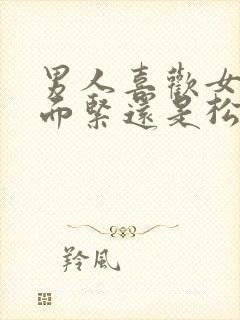 男人喜歡女
而緊還是松
羚風